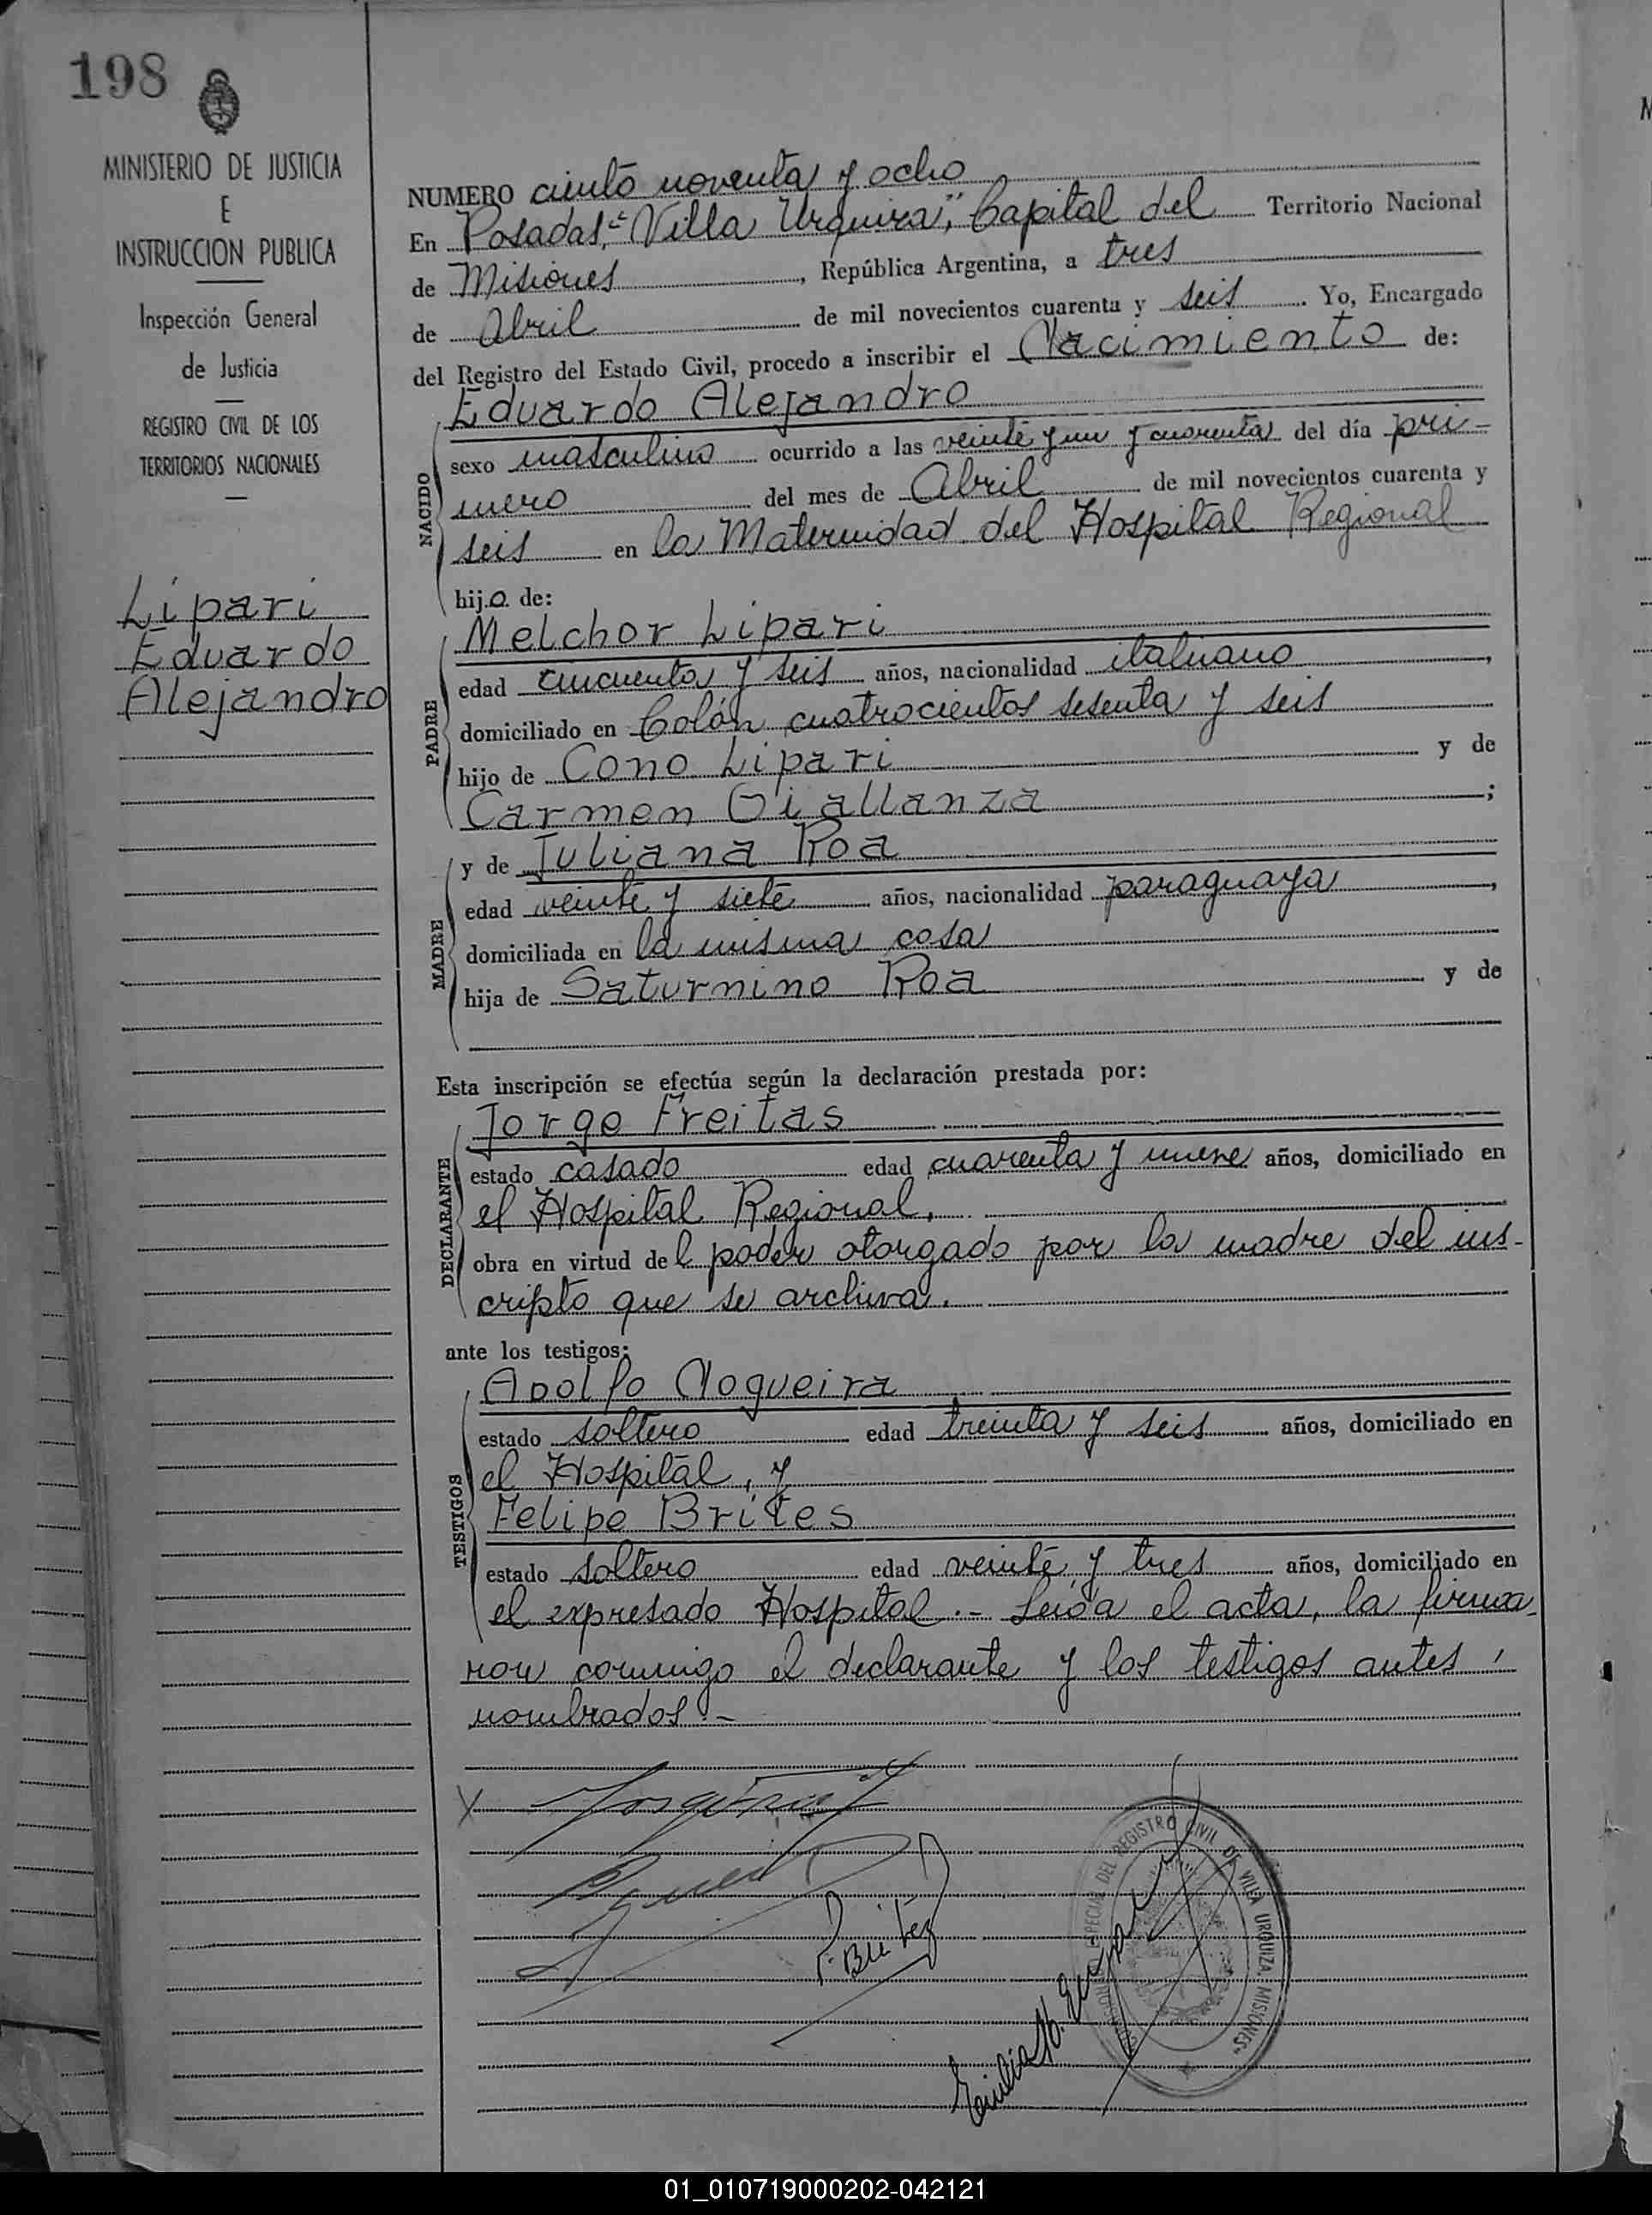 198
MINISTERIO DE JUSTICIA
E
INSTRUCCION PUBLICA
Inspección General
de Justicia
REGISTRO CIVIL DE LOS
TERRITORIOS NACIONALES
Lipari
Eduardo
Alejandro
NUMERO ciento noventa y ocho
En Posadas, "Villa Urquiza", Capital del Territorio Nacional
de Misiones, República Argentina, a tres
de Abril de mil novecientos cuarenta y seis. Yo, Encargado
del Registro del Estado Civil, procedo a inscribir el Nacimiento de:
NACIDO
Eduardo Alejandro
sexo masculino ocurrido a las veinte y un y cuarenta del día pri-
mero del mes de Abril de mil novecientos cuarenta y
seis en la Maternidad del Hospital Regional
hijo de:
PADRE
Melchor Lipari
edad cincuenta y seis años, nacionalidad italiano,
domiciliado en Colón cuatrocientos sesenta y seis
hijo de Cono Lipari y de
Carmen Giallanza;
MADRE
y de Juliana Roa
edad veinte y siete años, nacionalidad paraguaya,
domiciliada en la misma casa
hija de Saturnino Roa y de
Esta inscripción se efectúa según la declaración prestada por:
DECLARANTE
Jorge Freitas
estado casado edad cuarenta y nueve años, domiciliado en
el Hospital Regional,
obra en virtud del poder otorgado por la madre del ins-
cripto que se archiva.
ante los testigos:
TESTIGOS
Adolfo Nogueira
estado soltero edad treinta y seis años, domiciliado en
el Hospital, y
Felipe Brites
estado soltero edad veinte y tres años, domiciliado en
el expresado Hospital.- Leída el acta, la firma-
ron conmigo el declarante y los testigos antes
nombrados.-
REGISTRO CIVIL DE VILLA URQUIZA. MISIONES
01_010719000202-042121